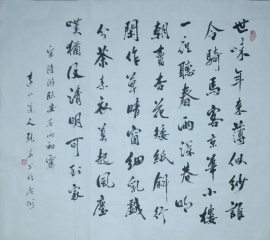 世味年來薄似紗誰
令騎馬客京華小樓
一夜聽春雨深巷明
朝賣杏花矮紙斜行
閒作草晴窗細乳戲
分茶素衣莫起風塵
嘆猶及清明可到家
宋陸游臨安春雨初霽